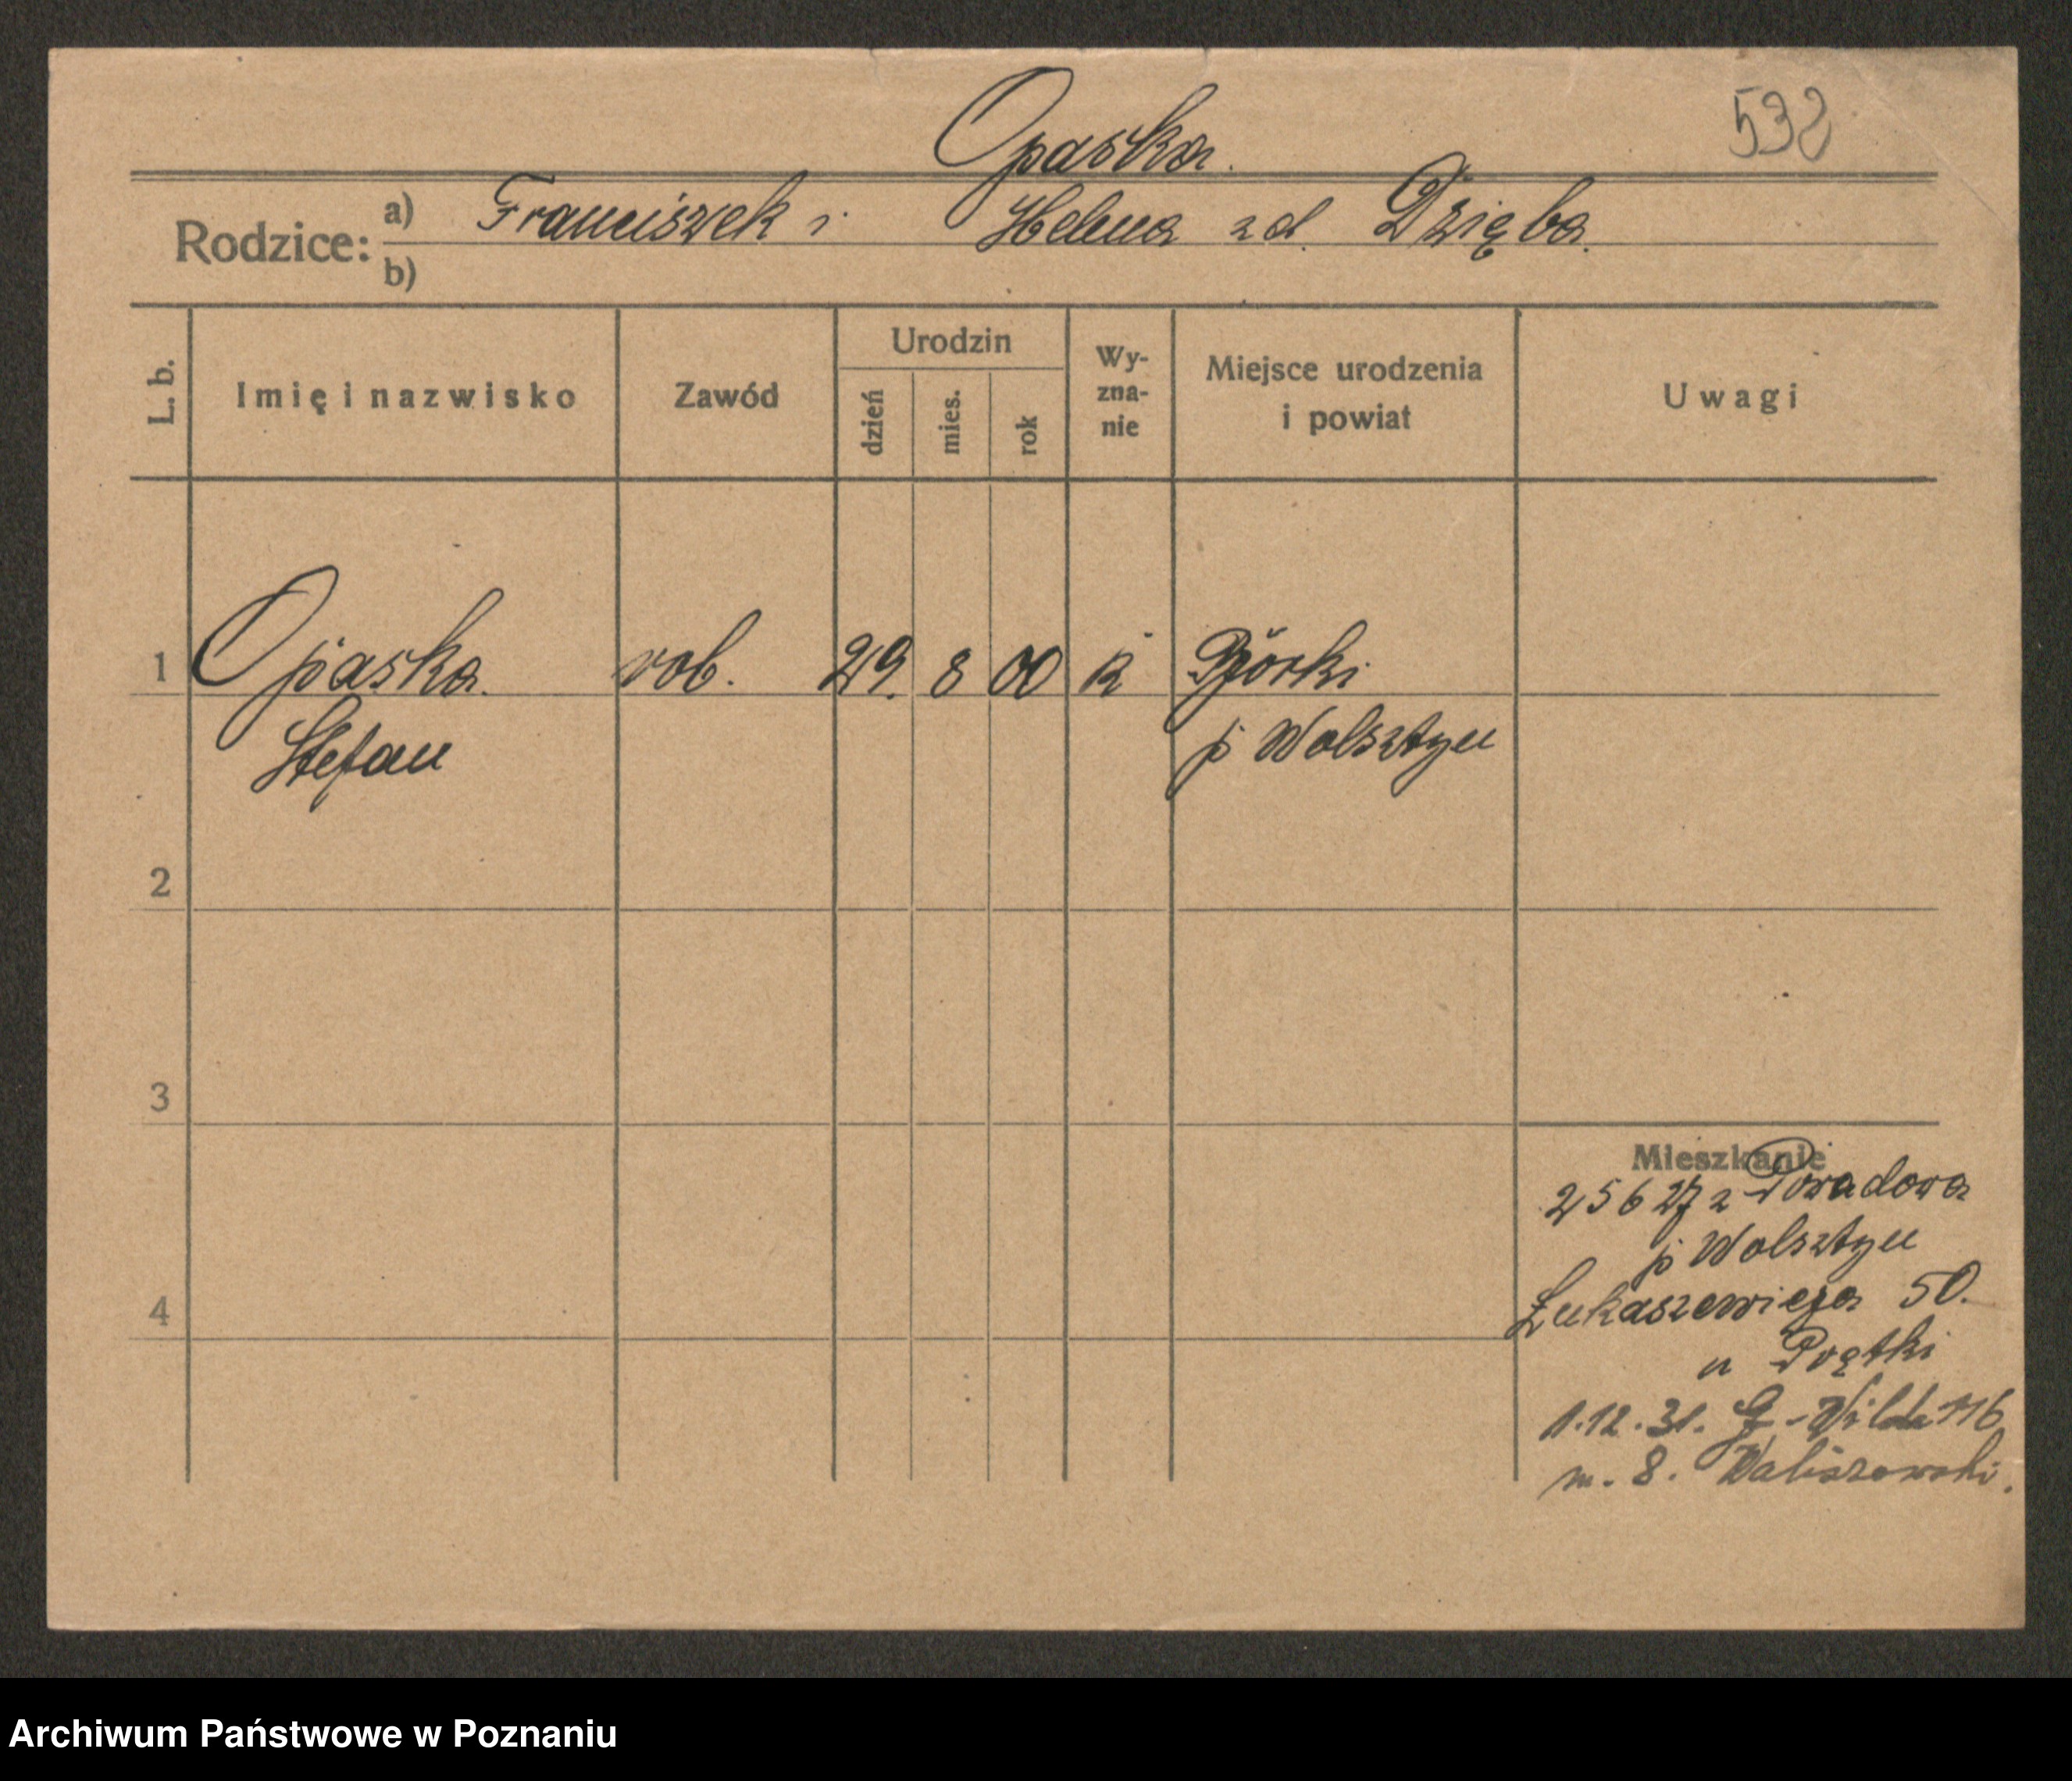 Opaska.
532
Rodzice:
a) Franciszek i Helena zd. Dzięba.
b)
L. b.
Imię i nazwisko
Zawód
Urodzin
dzień
mies.
rok
Wy-
zna-
nie
Miejsce urodzenia
i powiat
Uwagi
1 Opaska. rob. 29. 8 00 k
Stefan
p Wolsztyn
2
3
4
Mieszkanie
25 6 27 z Powadowa
p Wolsztyn
Łukaszewicza 50.
u Prętki
1.12.31. G.-Wilda 116
m. 8. Waliszewski.
Archiwum Państwowe w Poznaniu